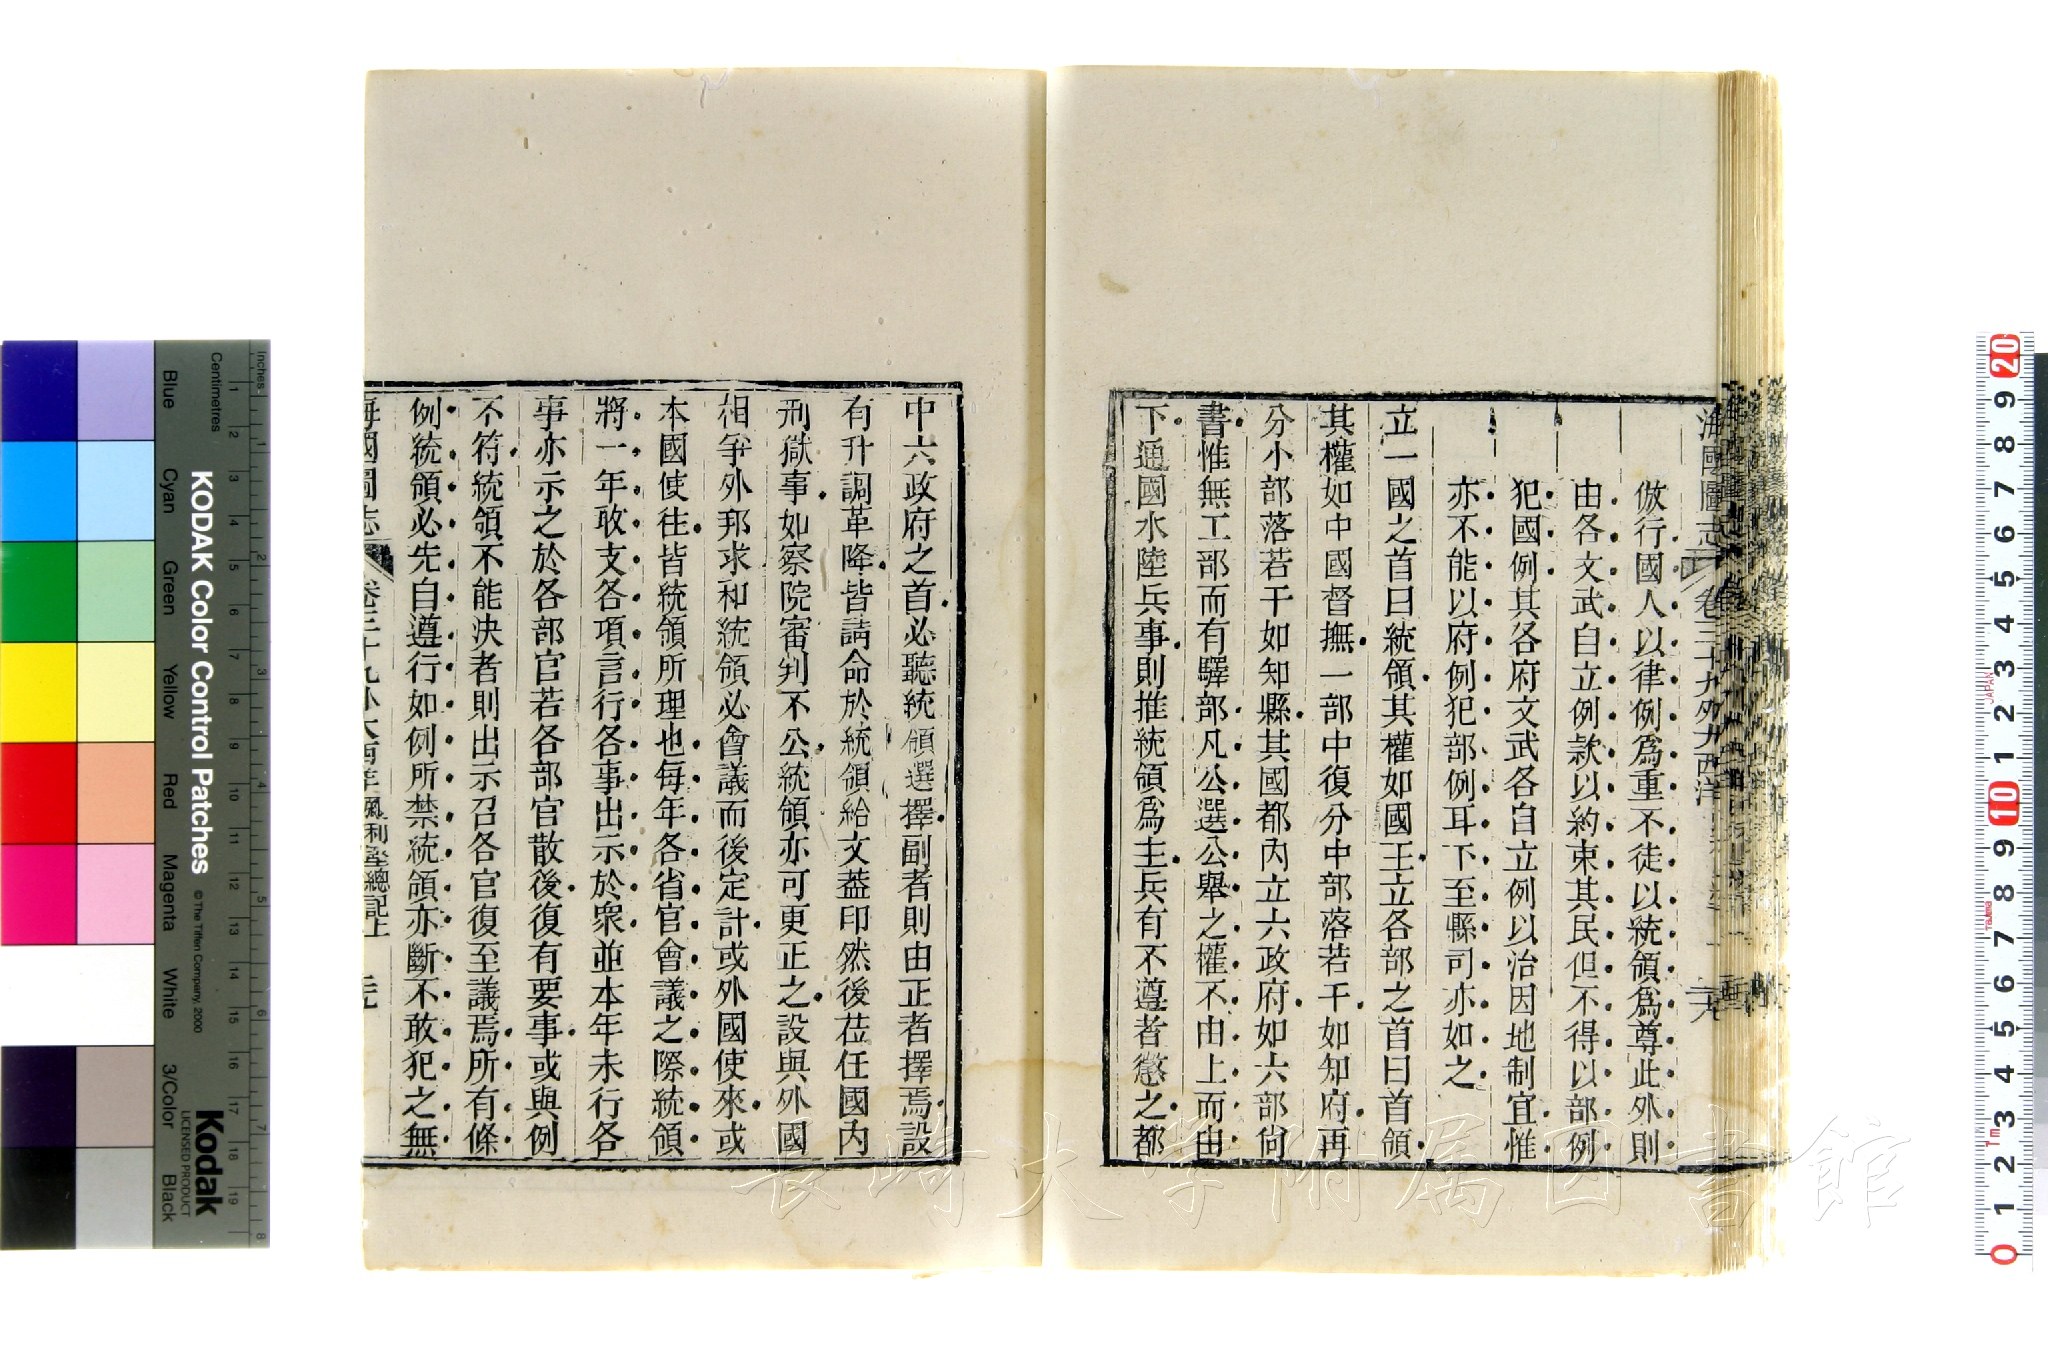 海國圖志 卷三十九外大西洋 二六
倣行國人以律例爲重不徒以統領爲尊此外則
由各文武自立例款以約束其民但不得以部例
犯國例其各府文武各自立例以治因地制宜惟
亦不能以府例犯部例耳下至縣司亦如之
立一國之首曰統領其權如國王立各部之首曰首領
其權如中國督撫一部中復分中部落若干如知府再
分小部落若干如知縣其國都內立六政府如六部尙
書惟無工部而有驛部凡公選公舉之權不由上而由
下通國水陸兵事則推統領爲主兵有不遵者懲之都
中六政府之首必聽統領選擇副者則由正者擇焉設
有升調革降皆請命於統領給文葢印然後莅任國內
刑獄事如察院審判不公統領亦可更正之設與外國
相爭外邦求和統領必會議而後定計或外國使來或
本國使往皆統領所理也每年各省官會議之際統領
將一年收支各項言行各事出示於衆並本年未行各
事亦示之於各部官若各部官散後復有要事或與例
不符統領不能決者則出示召各官復至議焉所有條
例統領必先自遵行如例所禁統領亦斷不敢犯之無
海國圖志 卷三十九外大西洋 彌利堅總記上
長崎大学附属図書館
KODAK Color Control Patches
© The Tiffen Company, 2000
Kodak
LICENSED PRODUCT
Centimetres
Inches
Blue
Cyan
Green
Yellow
Red
Magenta
White
3/Color
Black
1 2 3 4 5 6 7 8 9 10 11 12 13 14 15 16 17 18 19
1 2 3 4 5 6 7 8
20 9 8 7 6 5 4 3 2 1 10 9 8 7 6 5 4 3 2 1 0
JAPAN